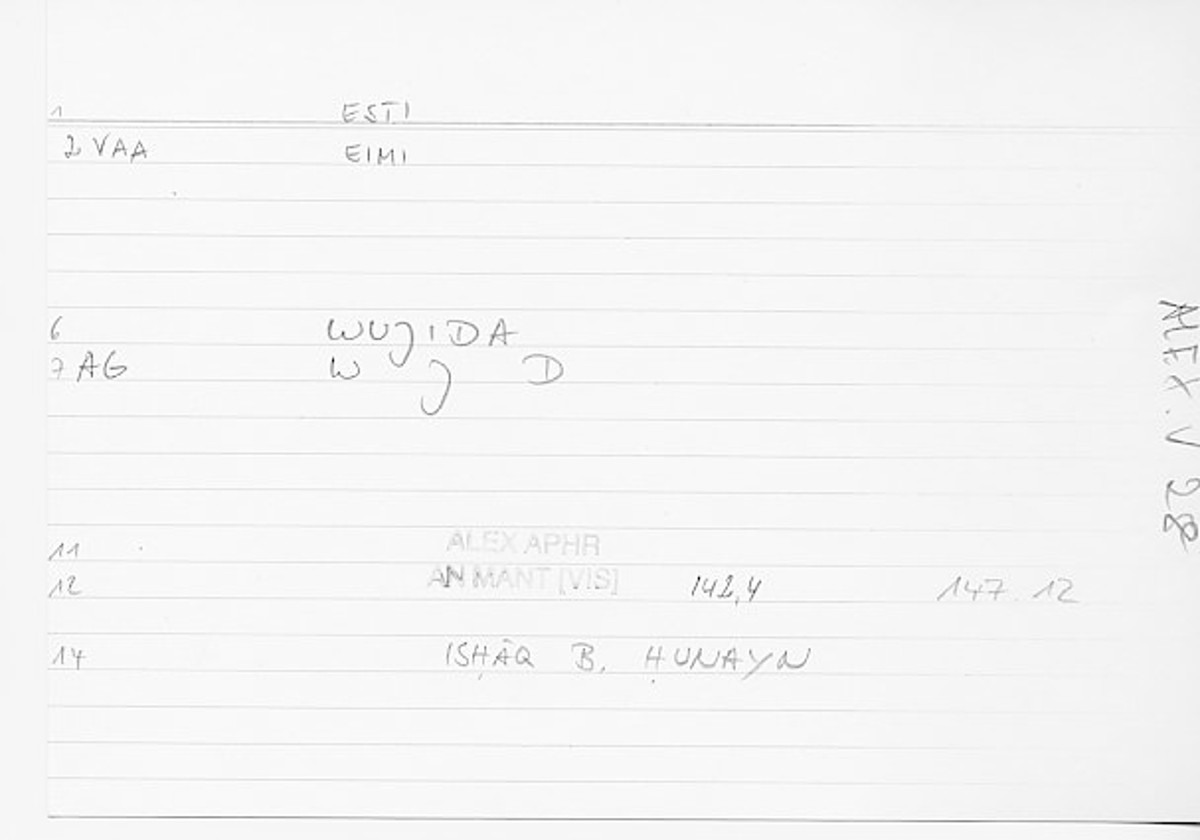 1 ESTI
2 VAA EIMI
6 WUJIDA
7 AG W J D
11 ALEX APHR
12 AN MANT [VIS] 142,4 147.12
14 ISḤĀQ B. ḤUNAYN
ALEX.V 28